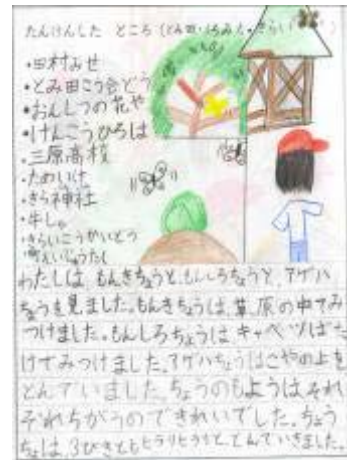 たんけんした ところ(とみ田・
・田村みせ
・とみ田こう会どう
・おんしつの花や
・けんこうひろば
・三原高校
・ためいけ
・きら神社
・牛しゃ
わたしは、もんきちょうと、もんしろちょうと、アゲハ
ちょうを見ました。もんきちょうは、草原の中でみ
つけました。もんしろちょうは キャベツばた
けでみつけました。アゲハちょうはこやの上を
とんでいました。ちょうのもようはそれ
ぞれちがうのできれいでした。ちょう
ちょは、3びきともヒラリヒラリととんでいきました。